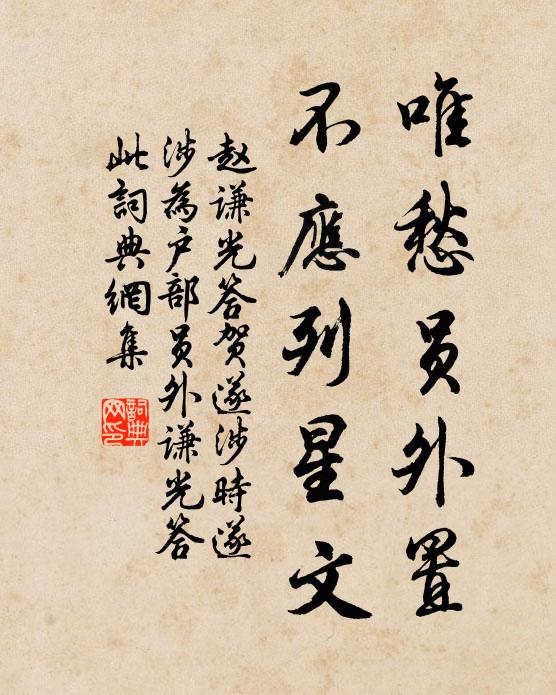 唯愁员外置
不應列星文
赵谦光答贺遂涉時遂
涉為户部员外谦光答
此詞典網集
詞典
网印